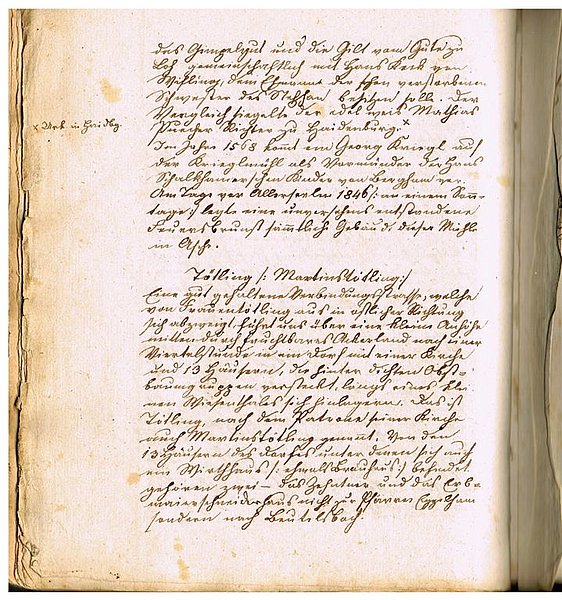 das Gimpelgut und die Gilt vom Gute zu
Loh gemeinschaftlich mit Hans Keck von
Wifling, dem Ehemann der schon verstorbenen
Schwester des Stephan besitzen solle. Den
Vergleich siegelte der edel weis Mathias
Puecher Richter zu Haidenburg.x
x Urk. in Haidbg.
Im Jahre 1568 kommt ein Georg Kriegl auf
der Krieglmühl als Vormünder der Hans
Schalkhamerschen Kinder von Bergham vor.
Am Tage vor Allerseelen 1846 /: an einem Sonn-
tage :/ legte eine unversehens entstandene
Feuersbrunst sämmtliche Gebäude dieser Mühle
in Asche.
Tötling /: Martinstötling :/
Eine gut gehaltene Verbindungsstrasse, welche
von Frauentötling aus in östlicher Richtung
sich abzweigt, führt uns über eine kleine Anhöhe
mitten durch fruchtbares Ackerland nach einer
Viertelstunde in ein Dorf mit einer Kirche
und 13 Häusern, die hinter dichten Obst-
baumgruppen versteckt, längs eines klei-
nen Wiesenthales sich hinlagern. Das ist
Tötling, nach dem Patrone seiner Kirche
auch Martinstötling genannt. Von den
13 Häusern des Dorfes unter denen sich auch
ein Wirthshaus /: ehmals Brauhaus :/ befindet
gehören zwei – das Zehetner und das Erb-
maierschneiderhaus nicht zur Pfarrei Egglham
sondern nach Beutelsbach.